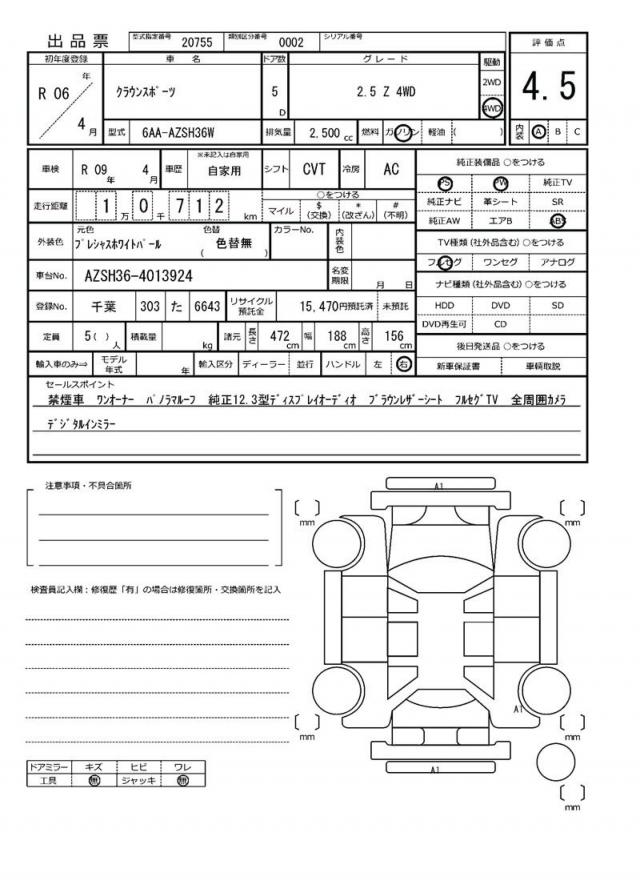 出品票 型式指定番号 20755 類別区分番号 0002 シリアル番号
評価点
4.5
初年度登録 車名 ドア数 グレード 駆動
R 06 年 4 月 クラウンスポーツ 5 D 2.5 Z 4WD 2WD 4WD
型式 6AA-AZSH36W 排気量 2,500 cc 燃料 ガソリン 軽油 ( ) 内装 A B C
車検 R 09 年 4 月 車歴 ※未記入は自家用 自家用 シフト CVT 冷房 AC
走行距離 1 万 0 千 7 1 2 km
○をつける
マイル $ (交換) * (改ざん) # (不明)
外装色 元色 プレシャスホワイトパール 色替 ( 色替無 ) カラーNo. 内装色
車台No. AZSH36-4013924 名変期限 月 日
登録No. 千葉 303 た 6643 リサイクル預託金 15,470円預託済 未預託
定員 5 ( ) 人 積載量 kg 諸元 長さ 472 cm 幅 188 cm 高さ 156 cm
輸入車のみ⇒ モデル年式 年 輸入区分 ディーラー 並行 ハンドル 左 右
純正装備品 ○をつける
PS PW 純正TV
純正ナビ 革シート SR
純正AW エアB ABS
TV種類 (社外品含む) ○をつける
フルセグ ワンセグ アナログ
ナビ種類 (社外品含む) ○をつける
HDD DVD SD
DVD再生可 CD
後日発送品 ○をつける
新車保証書 車輌取説
セールスポイント
禁煙車 ワンオーナー パノラマルーフ 純正12.3型ディスプレイオーディオ ブラウンレザーシート フルセグTV 全周囲カメラ
デジタルインミラー
注意事項・不具合箇所
検査員記入欄：修復歴「有」の場合は修復箇所・交換箇所を記入
A1
[ ] mm
[ ] mm
A1
[ ] mm
[ ] mm
A1
[ ] mm
ドアミラー キズ ヒビ ワレ
工具 無 ジャッキ 無